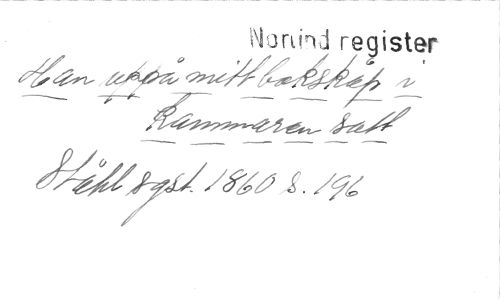 Norlind register
Han uppå mitt bokskåp i
kammaren satt
Ståhl sgst. 1860 s. 196